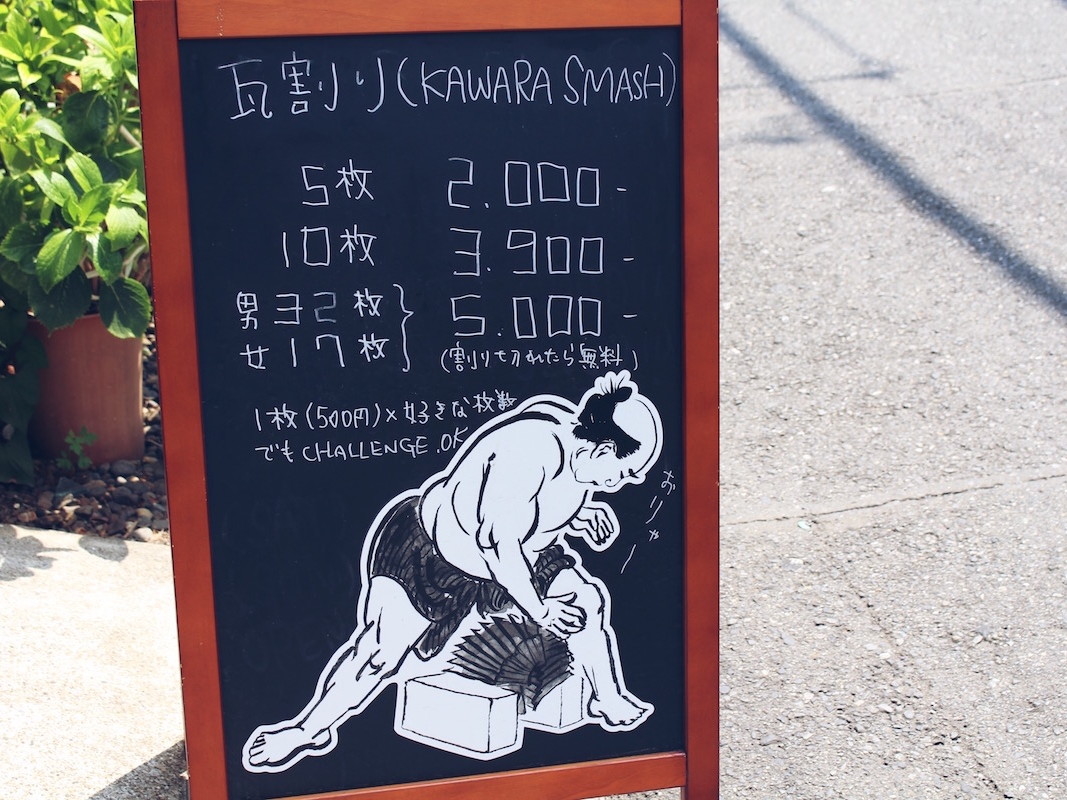 瓦割り(KAWARA SMASH)
5枚 2.000-
10枚 3.900-
男32枚
女17枚 } 5.000-
(割りきれたら無料)
1枚(500円)×好きな枚数
でもCHALLENGE.OK
おりゃー